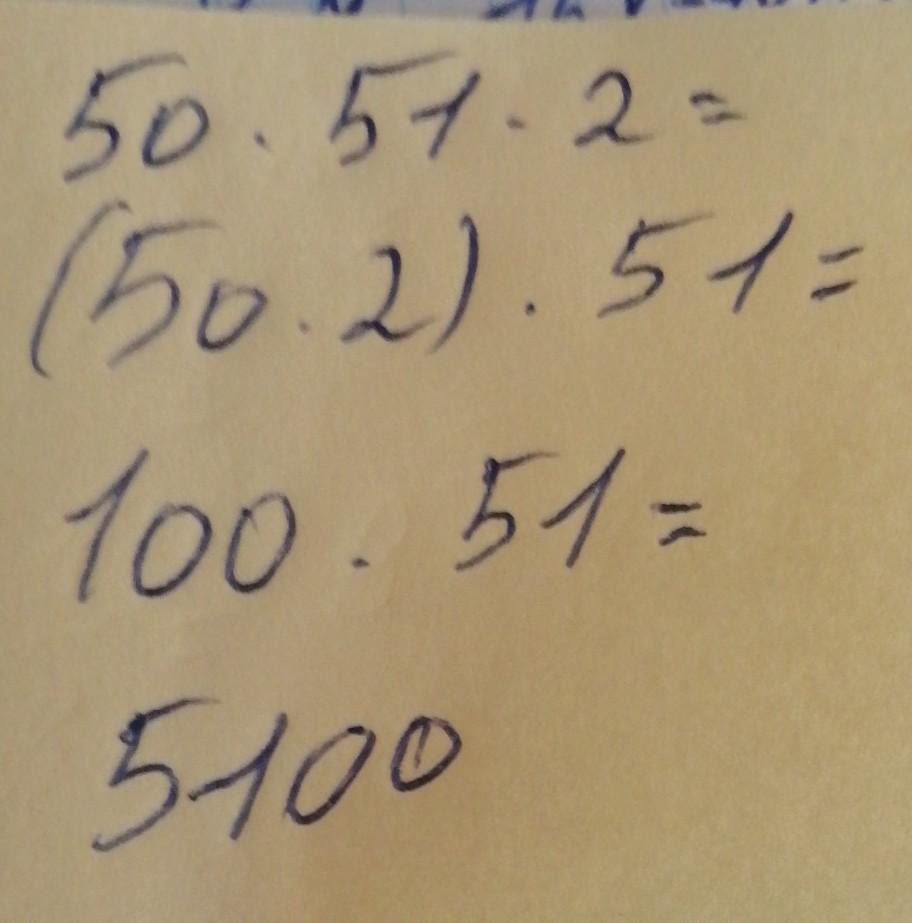 50 · 51 · 2 =
(50 · 2) · 51 =
100 · 51 =
5100